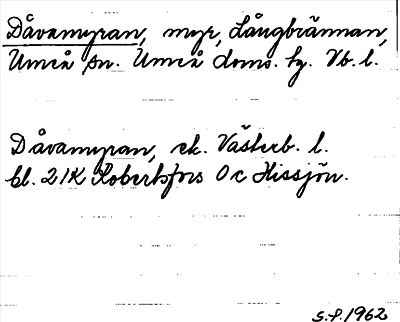 Dåvamyran, myr, Långbrännan,
Umeå sn. Umeå doms. hg. Vb. l.
Dåvamyran, ek. Västerb. l.
bl. 21K Robertsfors 0c Hissjön.
s.f. 1962